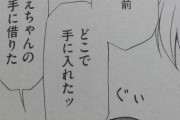 前
ぐい
どこで
手に入れたッ
えちゃんの
手に借りた